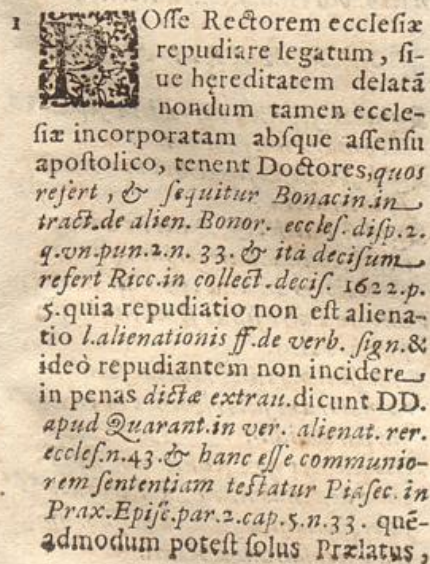 1 POſſe Rectorem eccleſiæ
repudiare legatum, ſi-
ue hęreditatem delatã
nondum tamen eccle-
ſiæ incorporatam abſque aſſenſu
apoſtolico, tenent Doctores, quos
refert, & ſequitur Bonacin. in
tract. de alien. Bonor. eccleſ. diſp. 2.
q. vn. pun. 2. n. 33. & ità deciſum
refert Ricc. in collect. deciſ. 1622. p.
5. quia repudiatio non eſt aliena-
tio l. alienationis ff. de verb. ſign. &
ideò repudiantem non incidere
in penas dictæ extrau. dicunt DD.
apud Quarant. in ver. alienat. rer.
eccleſ. n. 43. & hanc eſſe communio-
rem ſententiam teſtatur Piaſec. in
Prax. Epiſc. par. 2. cap. 5. n. 33. quẽ-
admodum poteſt ſolus Prælatus,